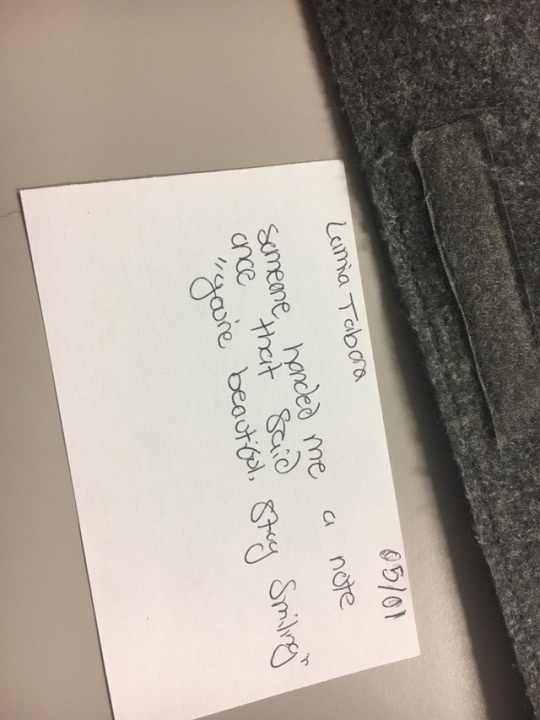 Lamia Tabora
05/01
Someone handed me a note
once that said
"you're beautiful, stay smiling"